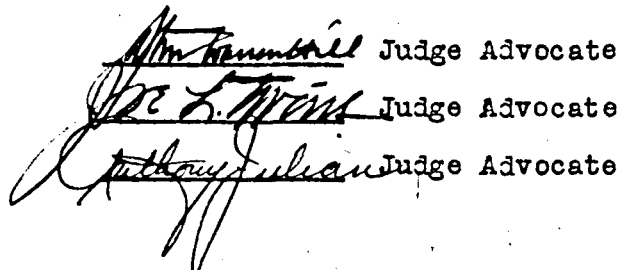 Judge Advocate
Joe L. Evins Judge Advocate
Anthony Julian Judge Advocate